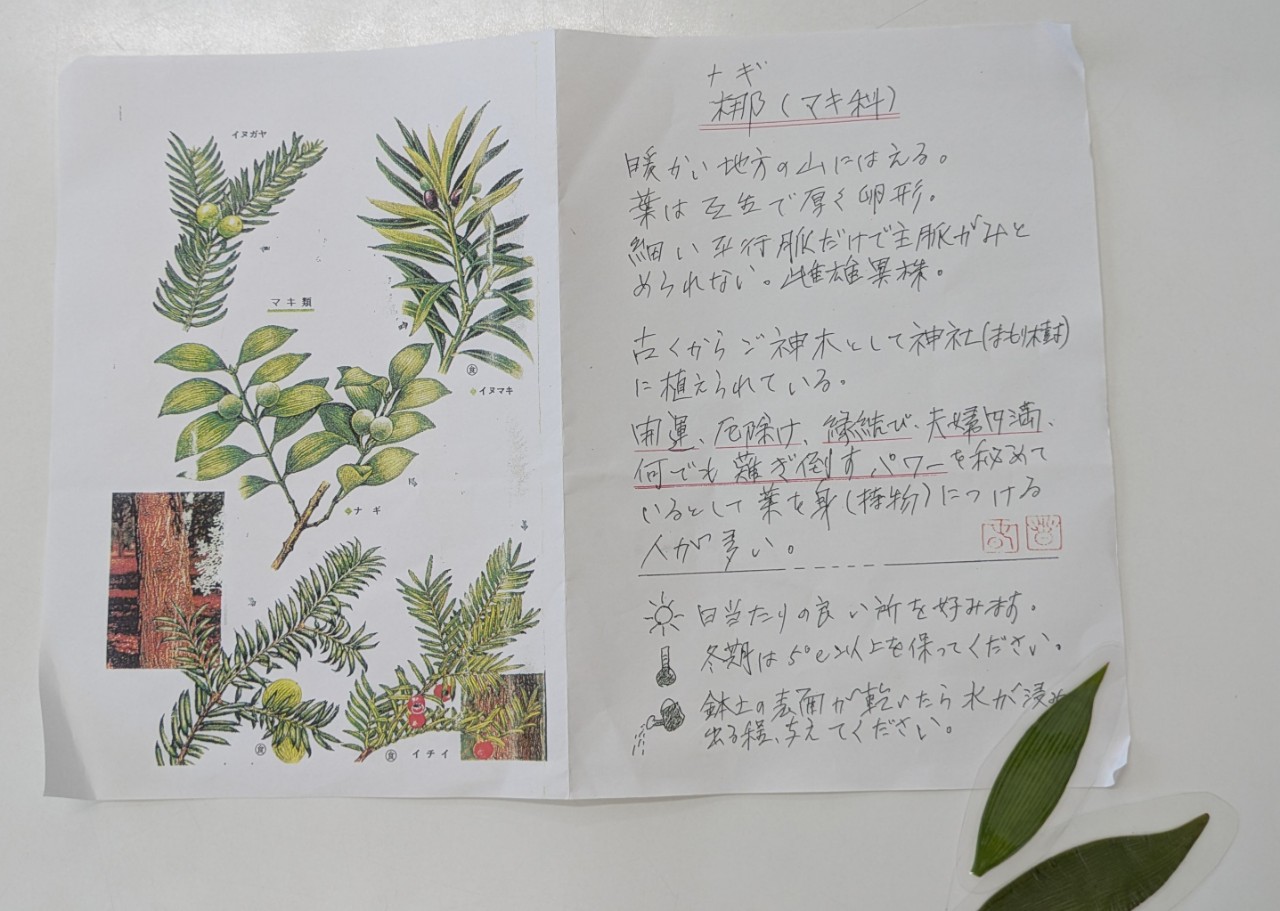 イヌガヤ
マキ類
食
イヌマキ
ナギ
食
食 イチイ
ナギ
梛(マキ科)
暖かい地方の山にはえる。
葉は互生で厚く卵形。
細い平行脈だけで主脈がみと
められない。雌雄異株。
古くからご神木として神社(まもり樹)
に植えられている。
開運、厄除け、縁結び、夫婦円満、
何でも薙ぎ倒すパワーを秘めて
いるとして葉を身(持物)につける
人が多い。
日当たりの良い所を好みます。
冬期は5℃以上を保ってください。
鉢土の表面が乾いたら水が浸み
出る程、与えてください。